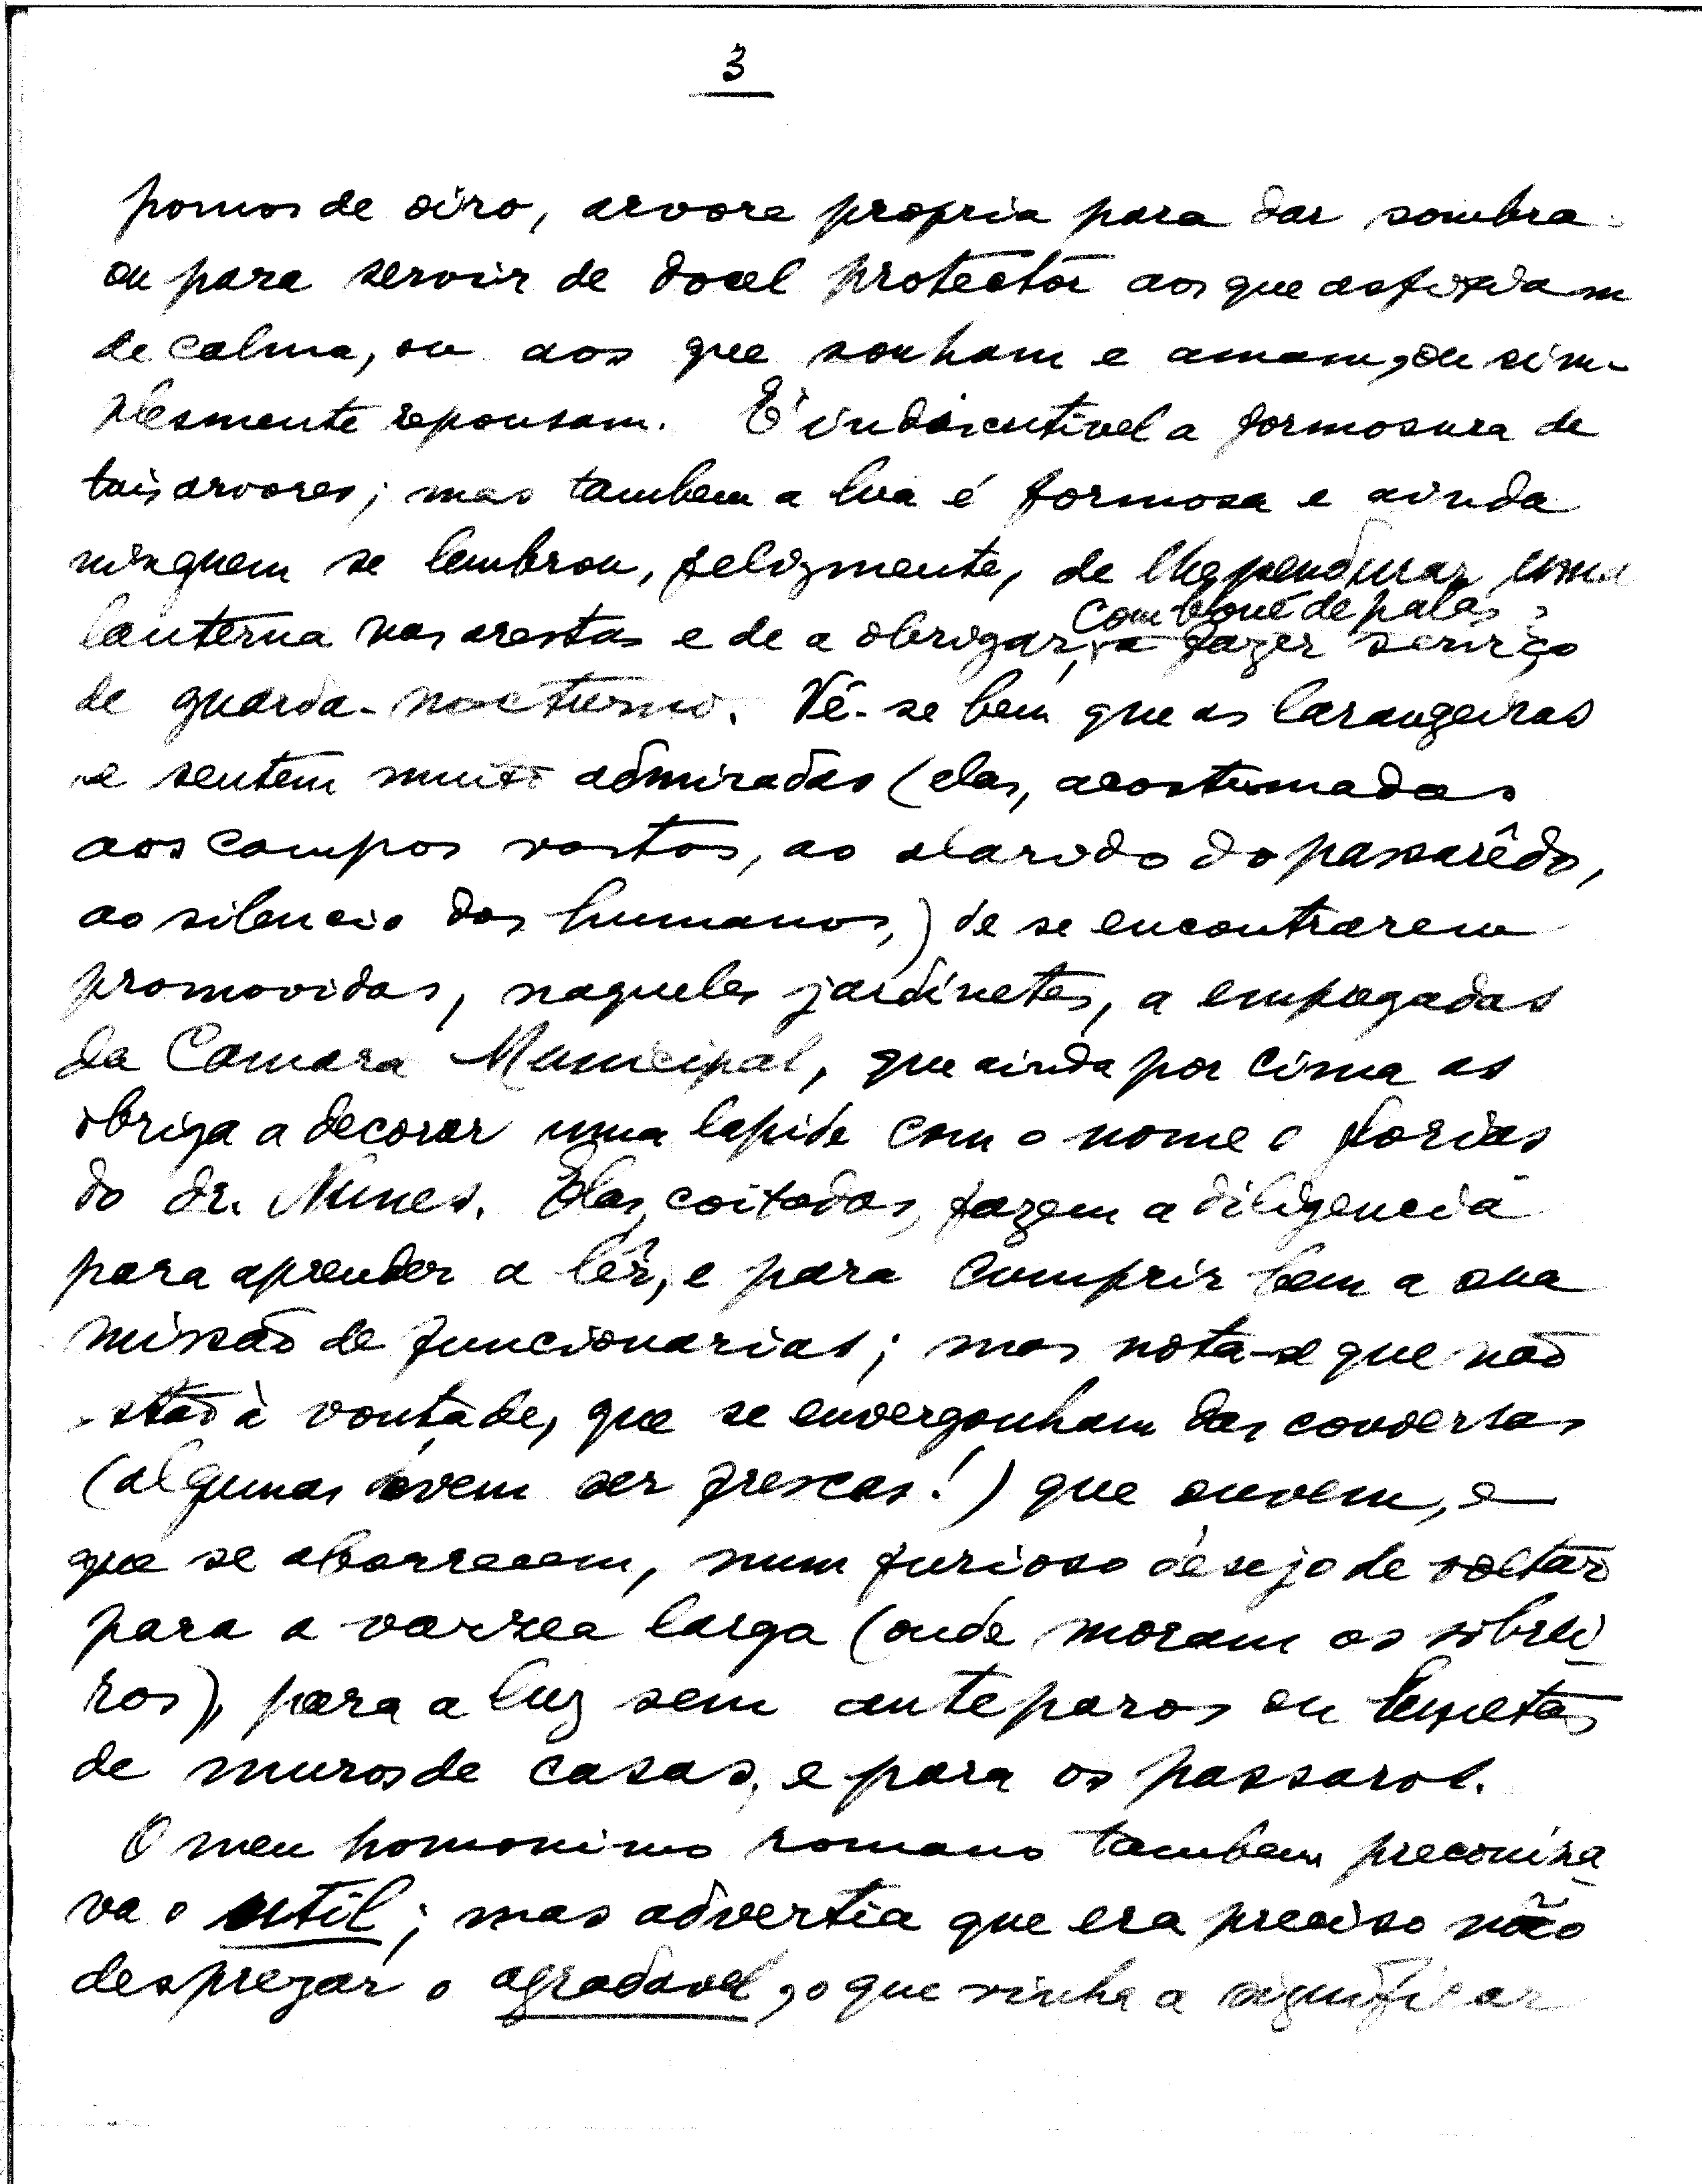 3
pomos de oiro, arvore propria para dar sombra
ou para servir de docel protector aos que asfixiam
de calma, ou aos que sonham e amam, ou sim-
plesmente repousam. É indiscutivel a formosura de
tais arvores; mas tambem a lua é formosa e ainda
ninguem se lembrou, felizmente, de lhe pendurar uma
com boné de pala,
lanterna nas arestas e de a obrigar, a fazer serviço
de guarda-nocturno. Vê-se bem que as larangeiras
se sentem muito admiradas (elas, acostumadas
aos campos vastos, ao alarido do passarêdo,
ao silencio dos humanos,) de se encontrarem
promovidas, naqueles jardinetes, a empregadas
da Camara Municipal, que ainda por cima as
obriga a decorar uma lapide com o nome e glorias
do dr. Nunes. Elas, coitadas, fazem a diligencia
para aprender a lêr, e para cumprir bem a sua
missão de funcionarias; mas nota-se que não
estão à vontade, que se envergonham das conversas
(algumas devem ser frescas!) que ouvem, e
que se aborrecem, num furioso desejo de voltar
para a varzea larga (onde moram os sobrei-
ros), para a luz sem anteparos ou lunetas
de muros de casas, e para os passaros.
O meu homonimo romano tambem preconisa-
va o util; mas advertia que era preciso não
desprezar o agradavel, o que vinha a significar